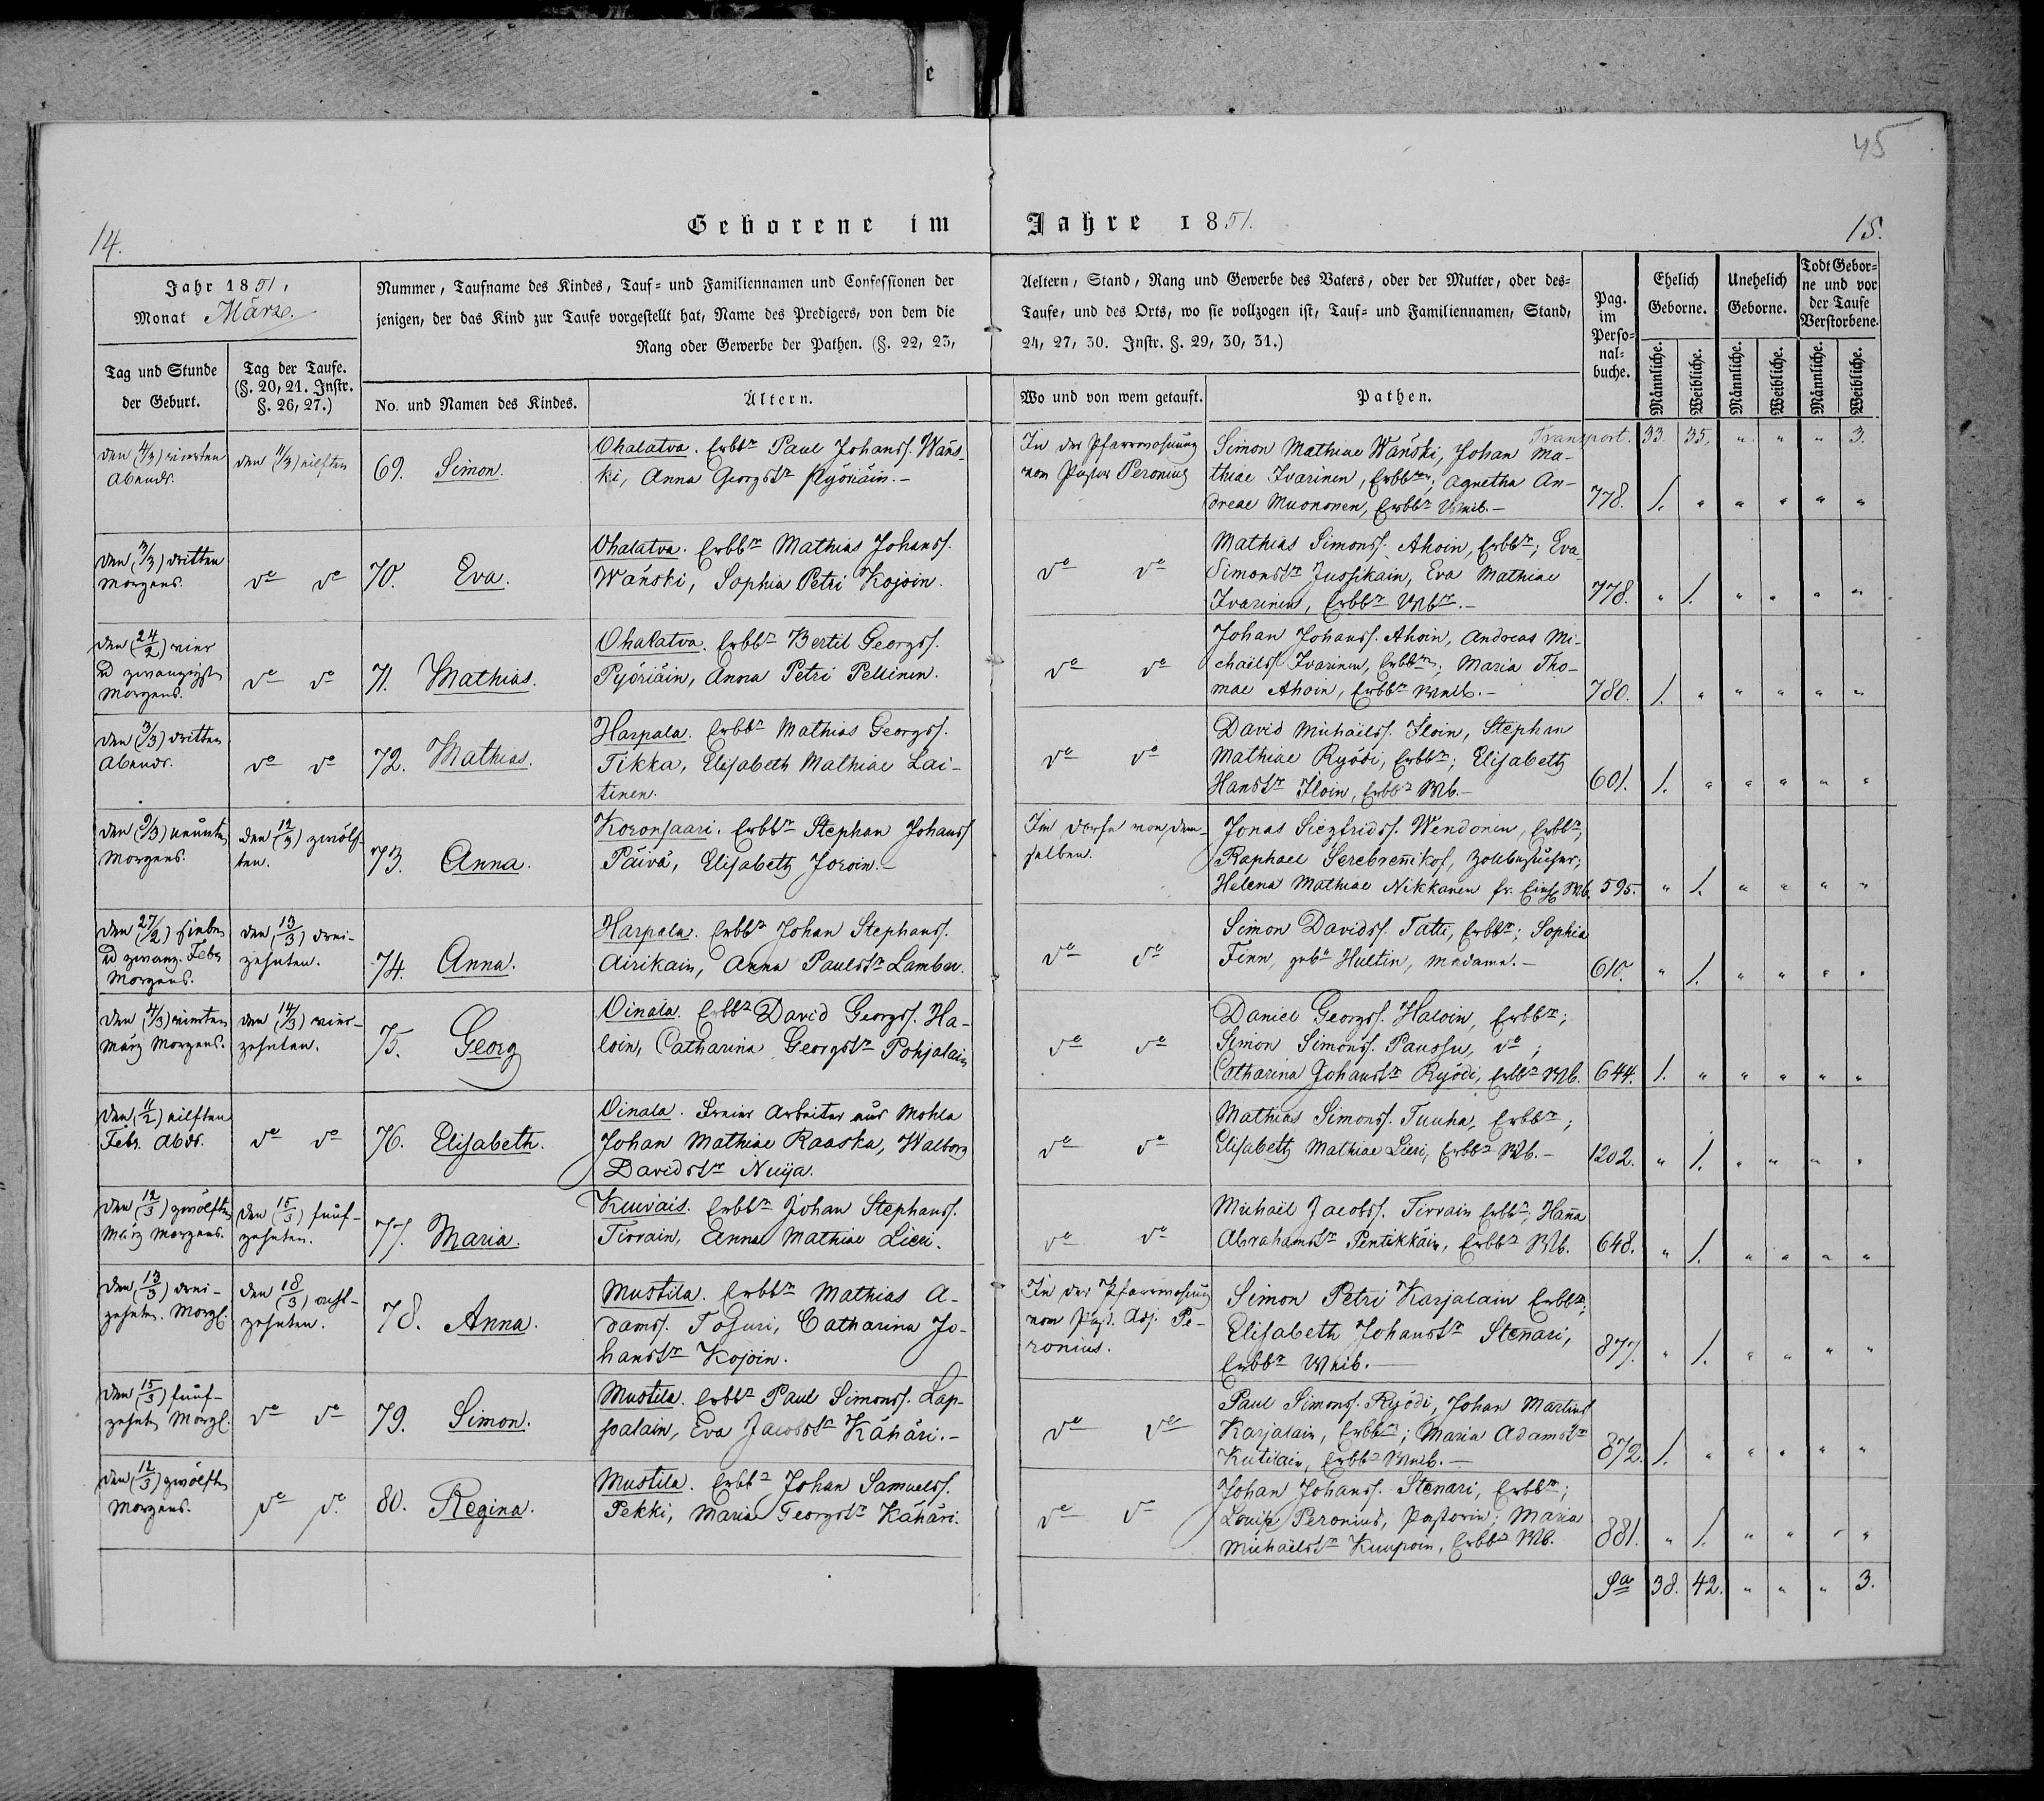 45
14.
Geborene im Jahre 1851.
15.
Jahr 1851,
Monat März.
Nummer, Taufname des Kindes, Tauf- und Familiennamen und Confessionen der
jenigen, der das Kind zur Taufe vorgestellt hat, Name des Predigers, von dem die
Rang oder Gewerbe der Pathen. (§. 22, 23,
Aeltern, Stand, Rang und Gewerbe des Vaters, oder der Mutter, oder des-
Taufe, und des Orts, wo sie vollzogen ist, Tauf- und Familiennamen, Stand,
24, 27, 30. Instr. §. 29, 30, 31.)
Pag.
im
Perso-
nal-
buche.
Ehelich
Geborne.
Unehelich
Geborne.
Todt Gebor-
ne und vor
der Taufe
Verstorbene.
Tag und Stunde
der Geburt.
Tag der Taufe.
(§. 20, 21. Instr.
§. 26, 27.)
No. und Namen des Kindes.
Ältern.
Wo und von wem getauft.
Pathen.
Männliche. Weibliche. Männliche. Weibliche. Männliche. Weibliche.
Transport. 33. 35. " " " 3.
den (4/3) vierten
Abends.
den (11/3) eilften
69. Simon.
Ohalatva. Erbbr Paul Johanss. Wäns-
ki, Anna Georgstr Pyöriäin.-
In der Pfarrwohnung
vom Pastor Peronius
Simon Mathiae Wänski, Johan Ma-
thiae Ivarinen, Erbbrn; Agnetha An-
dreae Muononen, Erbbr Weib.-
778. 1. " " " " "
den (3/3) dritten
Morgens.
do do
70. Eva.
Ohalatva. Erbbr Mathias Johanss.
Wänski, Sophia Petri Kojoin.
do do
Mathias Simonss. Ahoin, Erbbr; Eva
Simonstr Jussikain, Eva Mathiae
Ivarinen, Erbbr Wbr.-
778. " 1. " " " "
den (24/2) vier
u zwanzigst
Morgens.
do do
71. Mathias.
Ohalatva. Erbbr Bertil Georgss.
Pyöriäin, Anna Petri Pellinen.
do do
Johan Johanss. Ahoin, Andreas Mi-
chaëlss. Ivarinen, Erbbrn; Maria Tho-
mae Ahoin, Erbbr Weib.-
780. 1. " " " " "
den (3/3) dritten
Abends.
do do
72. Mathias.
Harpala. Erbbr Mathias Georgss.
Tikka, Elisabeth Mathiae Lai-
tinen.
do do
David Michaëlss. Iloin, Stephan
Mathiae Ryödi, Erbbrn; Elisabeth
Hanstr Iloin, Erbbr Wb.-
601. 1. " " " " "
den (9/3) neunten
Morgens.
den (12/3) zwölf-
ten.
73. Anna.
Koronsaari. Erbbr Stephan Johanss
Päivä, Elisabeth Joroin.-
Im Dorfe von dem-
selben.
Jonas Siegfridss. Wendonen, Erbbr;
Raphael Serebrennikof, Zollbesucher;
Helena Mathiae Nikkanen fr. Wb.
595. " 1. " " " "
den (27/2) sieben
u zwanz. Febr
Morgens.
den (13/3) drei-
zehnten.
74. Anna.
Harpala. Erbbr Johan Stephanss.
Airikain, Anna Paulstr Lamba.
do do
Simon Davidss. Tattu, Erbbr; Sophia
Finn, geb. Hultin, Madame.-
610. " 1. " " " "
den (4/3) vierten
März Morgens.
den (14/3) vier-
zehnten.
75. Georg
Oinala. Erbbr David Georgss. Ha-
loin, Catharina Georgstr Pohjalain
do do
Daniel Georgss. Haloin, Erbbr;
Simon Simonss. Paussu, do;
Catharina Johanstr Ryödi, Erbbr Wb.
644. 1. " " " " "
den (11/2) eilften
Febr. Abds.
do do
76. Elisabeth.
Oinala. Freier Arbeiter aus Mohla
Johan Mathiae Raaska, Walborg
Davidstr Nuija.
do do
Mathias Simonss. Tuuha, Erbbr;
Elisabeth Mathiae Lieri, Erbbr Wb.-
1202. " 1. " " " "
den (12/3) zwölften
März Morgens.
den (15/3) fünf-
zehnten.
77. Maria.
Kuivais. Erbbr Johan Stephanss.
Tirrain, Anna Mathiae Lieri.
do do
Michaël Jacobss. Tirrain Erbbr; Hanna
Abrahamstr Pentikkäin, Erbbr Wb.
648. " 1. " " " "
den (13/3) drei-
zehnten. Morgs.
den (18/3) acht-
zehnten.
78. Anna.
Mustila. Erbbr Mathias A-
damss. Tohuri, Catharina Jo-
hanstr Kojoin.
In der Pfarrwohnung
vom Past. Adj. Pe-
ronius.
Simon Petri Karjalain Erbbr;
Elisabeth Johanstr Stenari,
Erbbr Weib.
877. " 1. " " " "
den (15/3) fünf-
zehnten Morgs.
do do
79. Simon.
Mustila. Erbbr Paul Simonss. Lap-
palain, Eva Jacobstr Kähäri.-
do do
Paul Simonss. Ryödi, Johan Martins
Karjalain, Erbbrn; Maria Adamstr
Kutilain, Erbbr Weib.-
872. 1. " " " " "
den (12/3) zwölften
Morgens.
do do.
80. Regina.
Mustila. Erbbr Johan Samuelss.
Pekki, Maria Georgstr Kähäri.
do do
Johan Johanss. Stenari, Erbbr;
Louise Peronius, Pastorin; Maria
Michaëlstr Kuupoin, Erbbr Wb.
881. " 1. " " " "
Sa 38. 42. " " " 3.